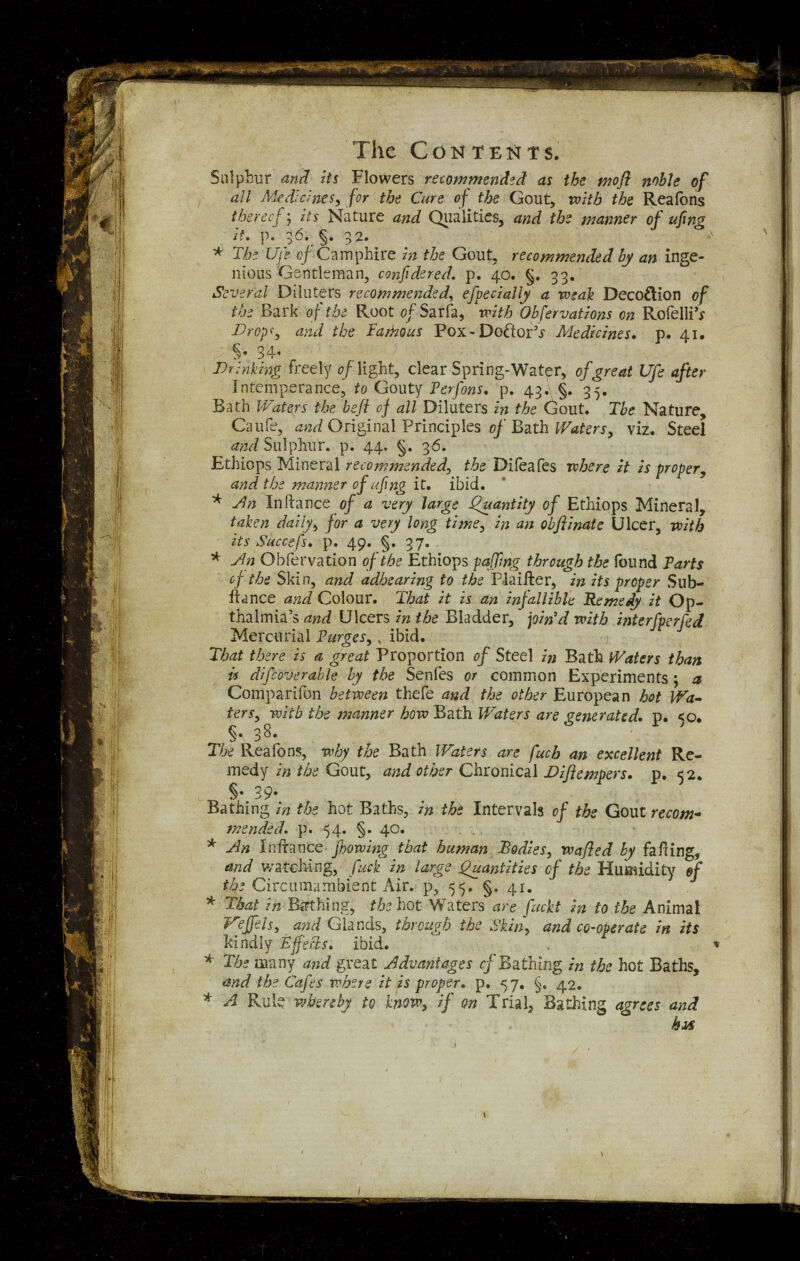 The CONTENTS.
Sulphur and its Flowers recommended as the moſt noble of
all Medicines, for the Cure of the Gout, with the Reaſons
thereof; its Nature and Qualities, and the manner of uſing
it. p. 36. §. 32.
* The Uſe of Camphire in the Gout, recommended by an inge-
nious Gentleman, conſidered. p. 40. §. 33.
Several Diluters recommended, eſpecially a weak Decoction of
the Bark of the Root of Sarſa, with Obſervations on Roſelli's
Drops, and the Famous Pox-Doctor's Medicines. p. 41.
§. 34.
Drinking freely of light, clear Spring-Water, of great Uſe after
Intemperance, to Gouty Perſons. p. 43. §. 35.
Bath Waters the beſt of all Diluters in the Gout. The Nature,
Cauſe, and Original Principles of Bath Waters, viz. Steel
and Sulphur. p. 44. §. 36.
Ethiops Mineral recommended, the Diſeaſes where it is proper,
and the manner of uſing it. ibid.
* An Inſtance of a very large Quantity of Ethiops Mineral,
taken daily, for a very long time, in an obſtinate Ulcer, with
its Succeſs. p. 49. §. 37.
* An Obſervation of the Ethiops paſſing through the ſound Parts
of the Skin, and adhearing to the Plaiſter, in its proper Sub-
ſtance and Colour. That it is an infallible Remedy it Op-
thalmia's and Ulcers in the Bladder, join'd with interſperſed
Mercurial Purges, ibid.
That there is a great Proportion of Steel in Bath Waters than
is diſcoverable by the Senſes or common Experiments; a
Compariſon between theſe and the other European hot Wa-
ters, with the manner how Bath Waters are generated. p. 50.
§. 38.
The Reaſons, why the Bath Waters are ſuch an excellent Re-
medy in the Gout, and other Chronical Diſtempers. p. 52.
§. 39.
Bathing in the hot Baths, in the Intervals of the Gout recom-
mended. p. 54. §. 40.
* An Inſtance ſhowing that human Bodies, waſted by faſting,
and watching, ſuck in large Quantities of the Humidity of
the Circumambient Air. p, 55. §. 41.
* That in Bathing, the hot Waters are ſuckt in to the Animal
Veſſels, and Glands, through the Skin, and co-operate in its
kindly Effects. ibid.
* The many and great Advantages of Bathing in the hot Baths,
and the Caſes where it is proper. p. 57. §. 42.
* A Rule whereby to know, if on Trial, Bathing agrees and
has